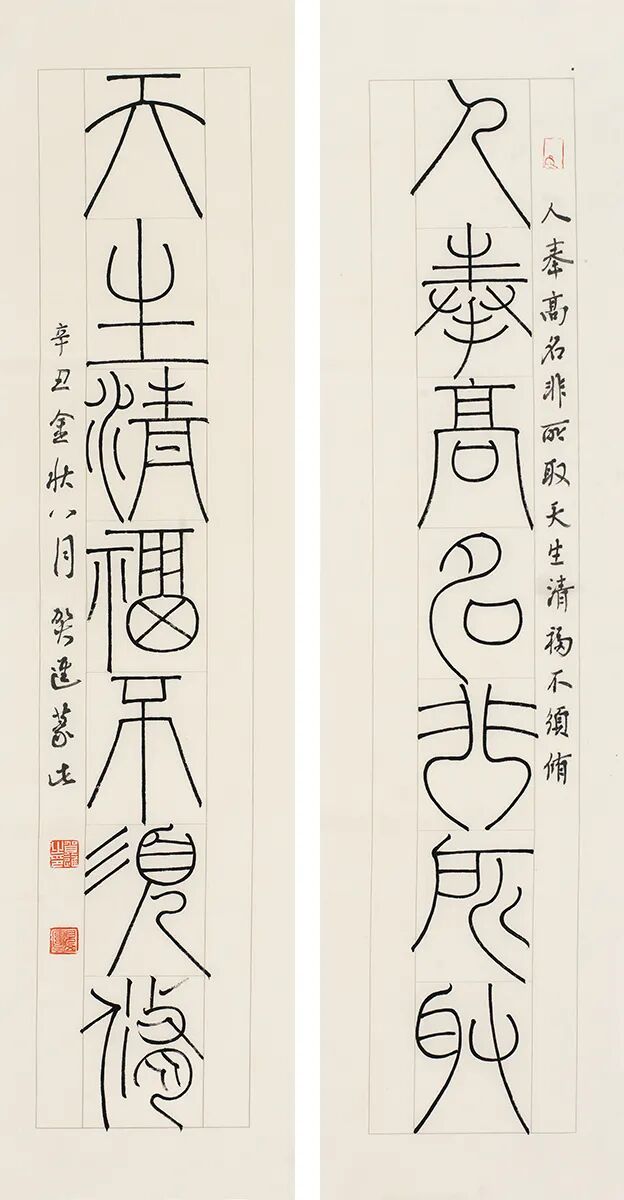 人奉高名非所取天生清福不須脩
人奉高名非所取
天生清福不須脩
辛丑金秋八月賀進篆此